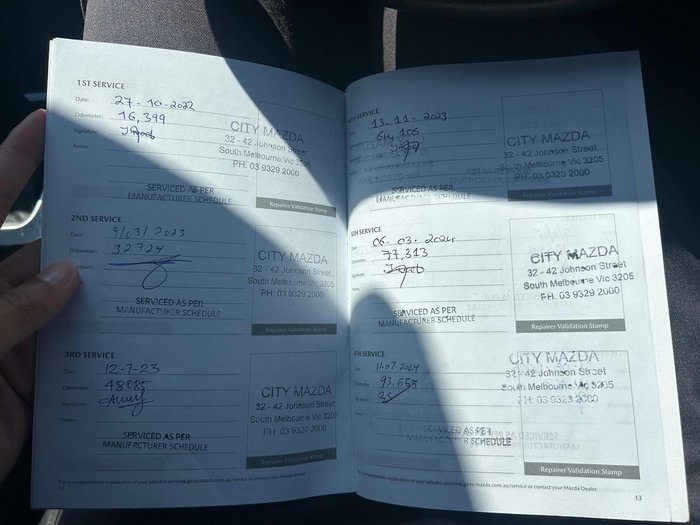 1ST SERVICE
Date: 27-10-2022
Odometer: 16,399
Signature:
Notes:
CITY MAZDA
32 - 42 Johnson Street
South Melbourne Vic 3205
PH: 03 9329 2000
SERVICED AS PER
MANUFACTURER SCHEDULE
Repairer Validation Stamp
2ND SERVICE
Date: 9/03/2023
Odometer: 32724
Signature:
CITY MAZDA
32 - 42 Johnson Street
South Melbourne Vic 3205
PH: 03 9329 2000
SERVICED AS PER
MANUFACTURER SCHEDULE
Repairer Validation Stamp
3RD SERVICE
Date: 12-7-23
Odometer: 48085
Signature:
Notes:
CITY MAZDA
32 - 42 Johnson Street
South Melbourne Vic 3205
PH: 03 9329 2000
SERVICED AS PER
MANUFACTURER SCHEDULE
Repairer Validation Stamp
*For a comprehensive explanation of your vehicle's servicing go to mazda.com.au/service or contact your Mazda Dealer.
12
4TH SERVICE
13-11-2023
64,105
CITY MAZDA
32 - 42 Johnson Street
South Melbourne Vic 3205
PH: 03 9329 2000
SERVICED AS PER
MANUFACTURER SCHEDULE
Repairer Validation Stamp
5TH SERVICE
Date: 06-03-2024
Odometer: 77,313
Signature:
Notes:
CITY MAZDA
32 - 42 Johnson Street
South Melbourne Vic 3205
PH: 03 9329 2000
SERVICED AS PER
MANUFACTURER SCHEDULE
Repairer Validation Stamp
6TH SERVICE
Date: 11.07.2024
Odometer: 93,665
Signature:
Notes:
CITY MAZDA
32 - 42 Johnson Street
South Melbourne Vic 3205
PH: 03 9329 2000
SERVICED AS PER
MANUFACTURER SCHEDULE
Repairer Validation Stamp
*For a comprehensive explanation of your vehicle's servicing go to mazda.com.au/service or contact your Mazda Dealer.
13